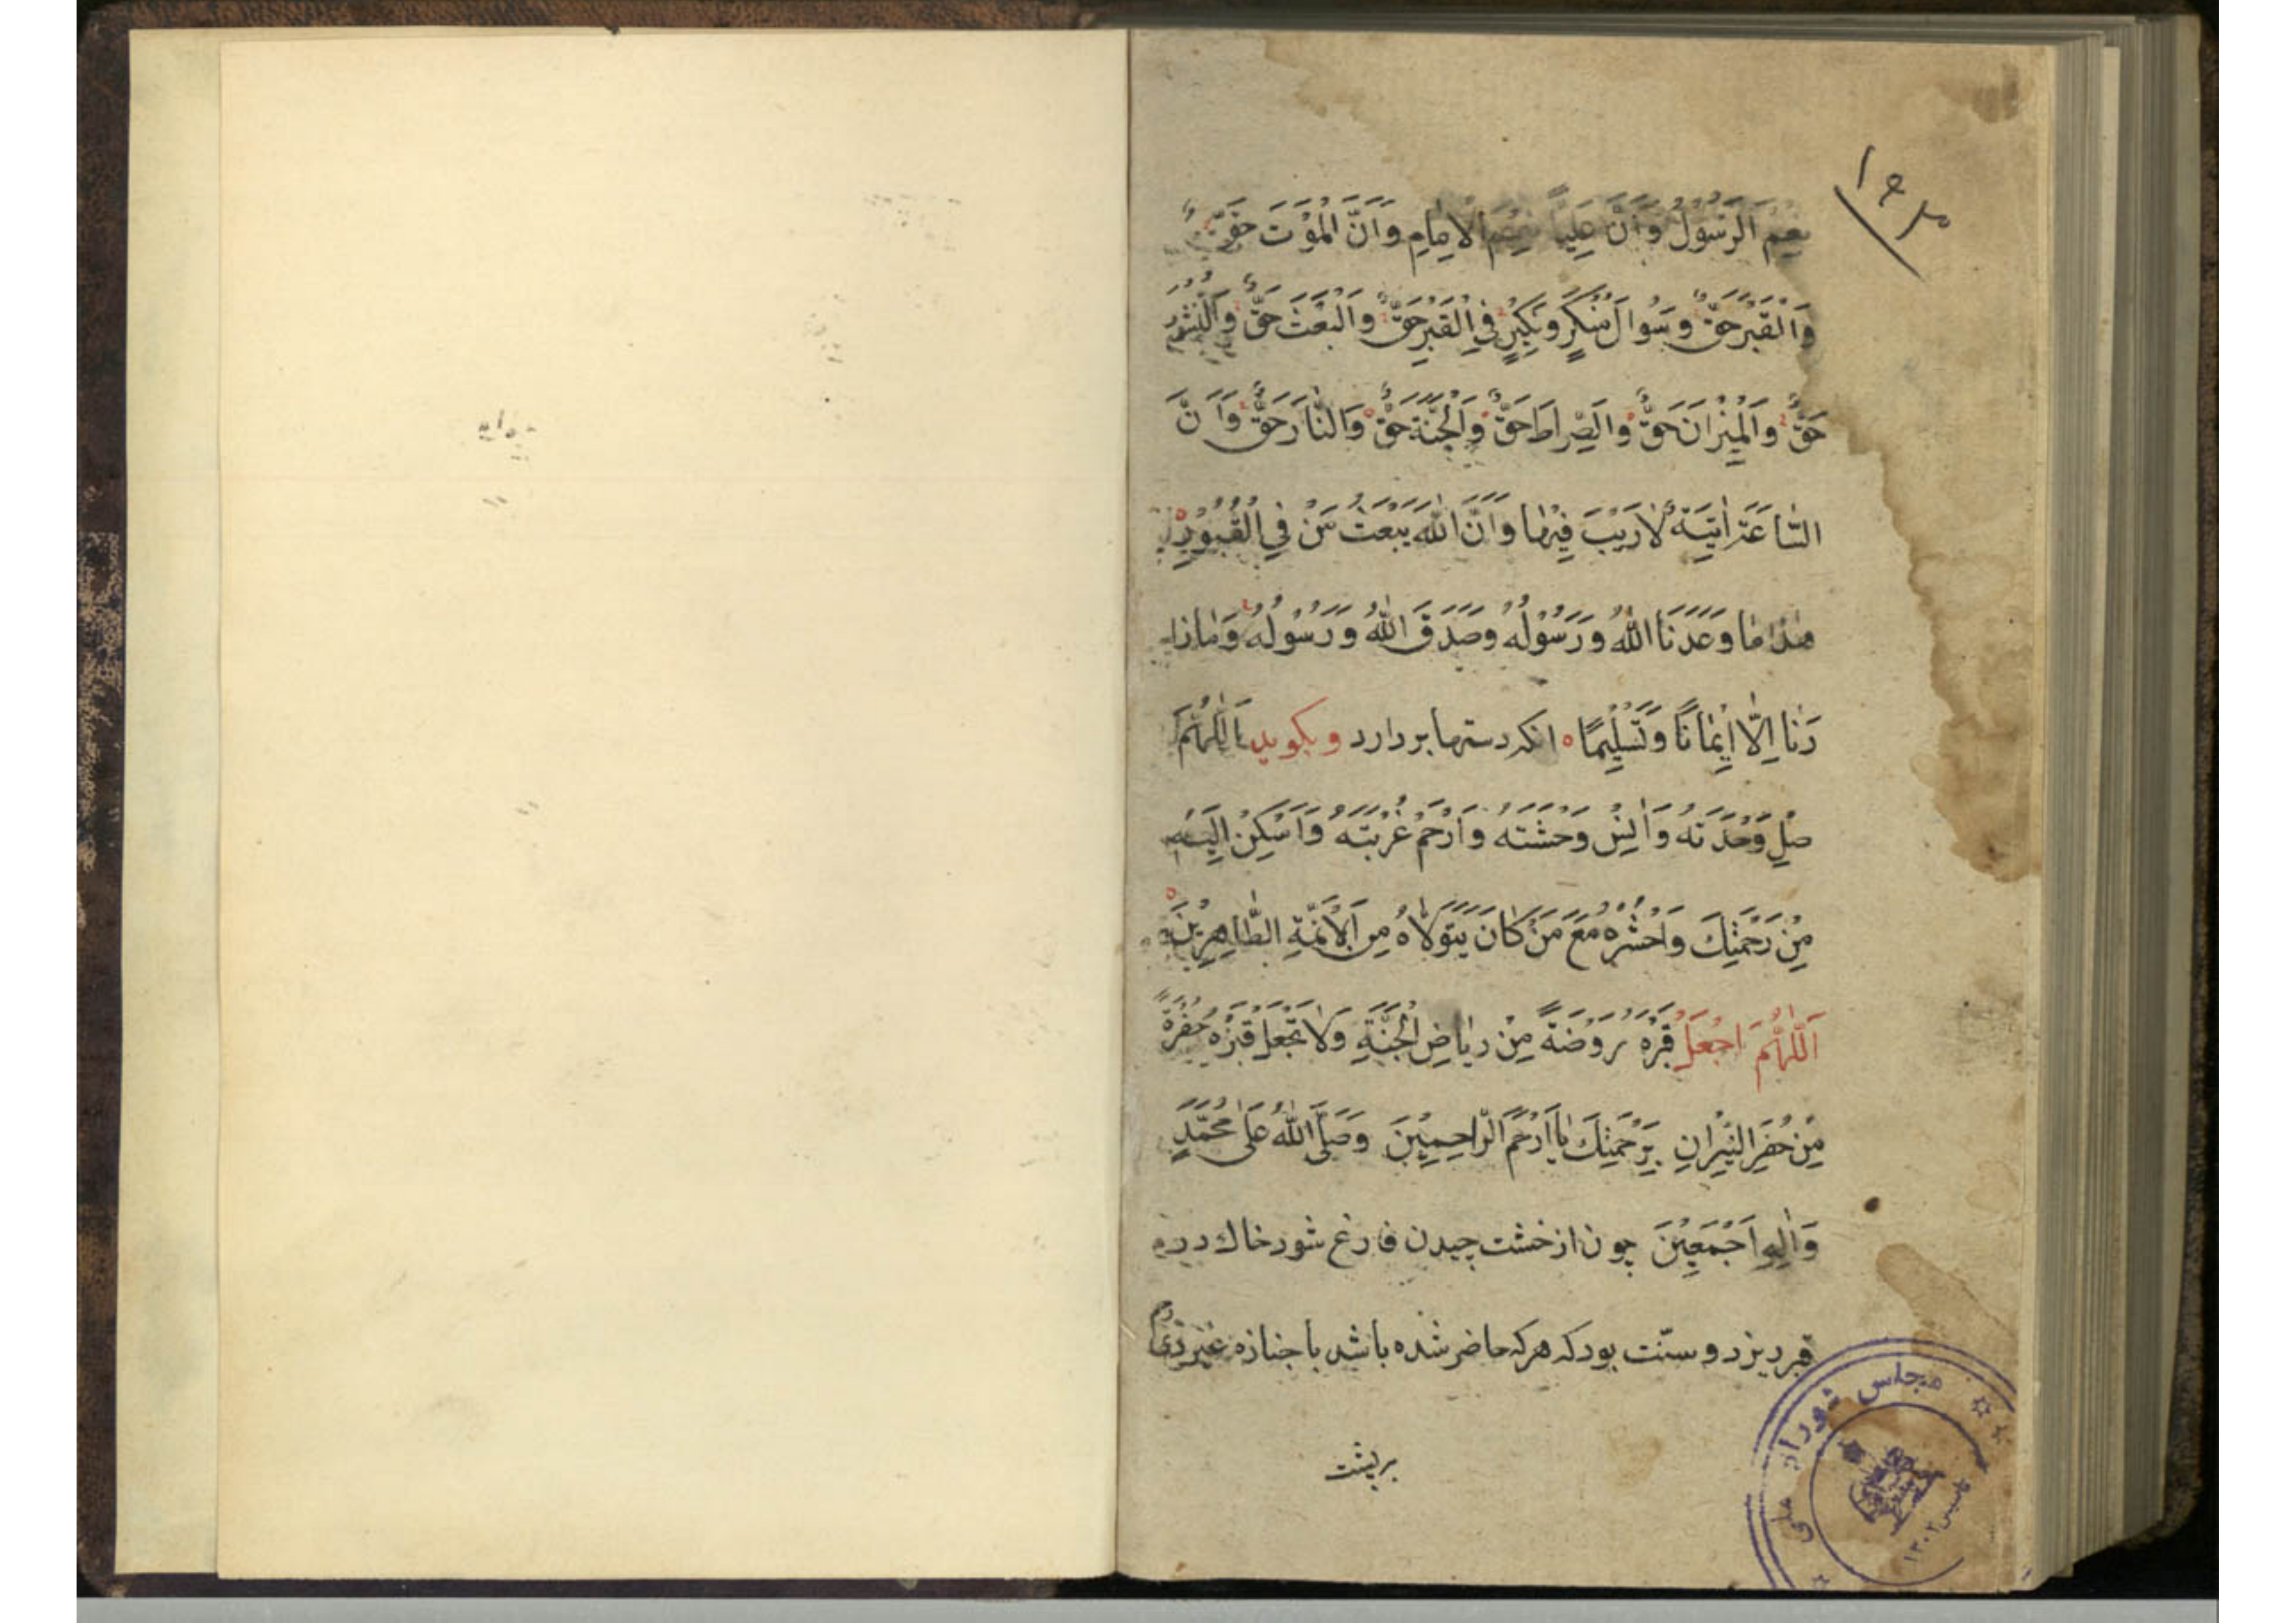 ۱۹۳
نِعْمَ الرَّسُولُ وَاَنَّ عَلِیّاً نِعْمَ الْاِمَامِ وَاَنَّ الْمَوْتَ حَقٌّ
وَالْقَبْرَ حَقٌّ وَسُوالَ مُنْکَرٍ وَنَکِیْرٍ فِی الْقَبْرِ حَقٌّ وَالْبَعْثَ حَقٌّ وَالنُّشُوْرَ
حَقٌّ وَالْمِیْزَانَ حَقٌّ وَالصِّرَاطَ حَقٌّ وَالْجَنَّةَ حَقٌّ وَالنَّارَ حَقٌّ وَاَنَّ
السَّاعَةَ اٰتِیَةٌ لَارَیْبَ فِیْهَا وَاَنَّ اللّٰهَ یَبْعَثُ مَنْ فِی الْقُبُوْرِ
هٰذَا مَا وَعَدَنَا اللّٰهُ وَرَسُوْلُهُ وَصَدَقَ اللّٰهُ وَرَسُوْلُهُ وَمَازَا
دَنَا اِلَّا اِیْمَانًا وَتَسْلِیْمًا انکه دستها بردارد وبکوید اَللّٰهُمَّ
صِلْ وَحْدَتَهُ وَاٰنِسْ وَحْشَتَهُ وَارْحَمْ غُرْبَتَهُ وَاَسْکِنْ اِلَیْهِ
مِنْ رَحْمَتِكَ وَاحْشُرْهُ مَعَ مَنْ کَانَ یَتَوَلَّاهُ مِنَ الْاَئِمَّةِ الطَّاهِرِیْنَ
اَللّٰهُمَّ اجْعَلْ قَبْرَهُ رَوْضَةً مِنْ رِیَاضِ الْجَنَّةِ وَلَا تَجْعَلْ قَبْرَهُ حُفْرَةً
مِنْ حُفَرِ النِّیْرَانِ بِرَحْمَتِكَ یَا اَرْحَمَ الرَّاحِمِیْنَ وَصَلَّی اللّٰهُ عَلٰی مُحَمَّدٍ
وَاٰلِهِ اَجْمَعِیْنَ چون از خشت چیدن فارغ شود خاك در
قبر ریزد و سنّت بود که هر که حاضر شده باشد با جنازه غیر ذی رحم
بریشت
مجلس شورای ملی
تاسیس ۱۳۰۲